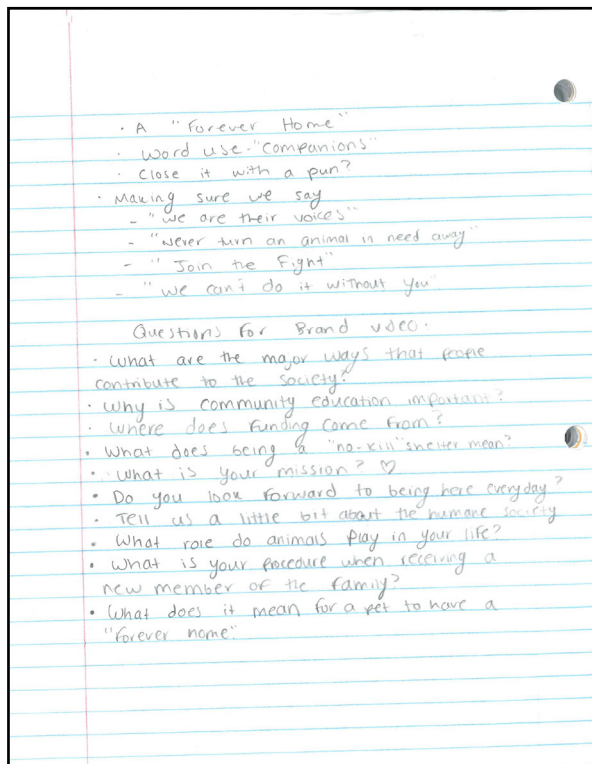 · A "Forever Home"
· Word use - "Companions"
· Close it with a pun?
· Making sure we say
- "we are their voices"
- "Never turn an animal in need away"
- "Join the Fight"
- "We can't do it without you"
Questions For Brand video.
· What are the major ways that people
contribute to the society?
· Why is community education important?
· Where does Funding come From?
· What does being a "no-kill" shelter mean?
· What is your mission? ♡
· Do you look Forward to being here everyday?
· Tell us a little bit about the humane society
· What role do animals play in your life?
· What is your procedure when receiving a
new member of the family?
· What does it mean for a pet to have a
"Forever home"